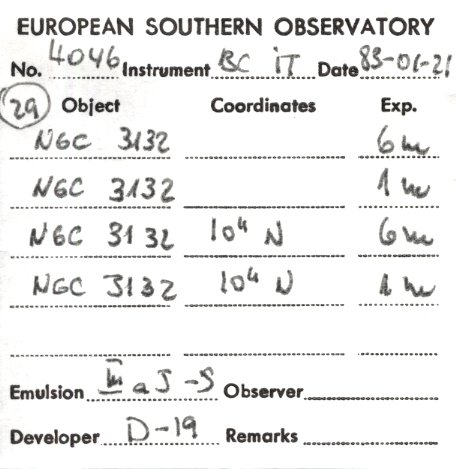 EUROPEAN SOUTHERN OBSERVATORY
No. 4046 Instrument BC iT Date 83-01-21
29 Object Coordinates Exp.
NGC 3132 6 m
NGC 3132 1 m
NGC 3132 10" N 6 m
NGC 3132 10" N 1 m
Emulsion III a J -S Observer
Developer D-19 Remarks